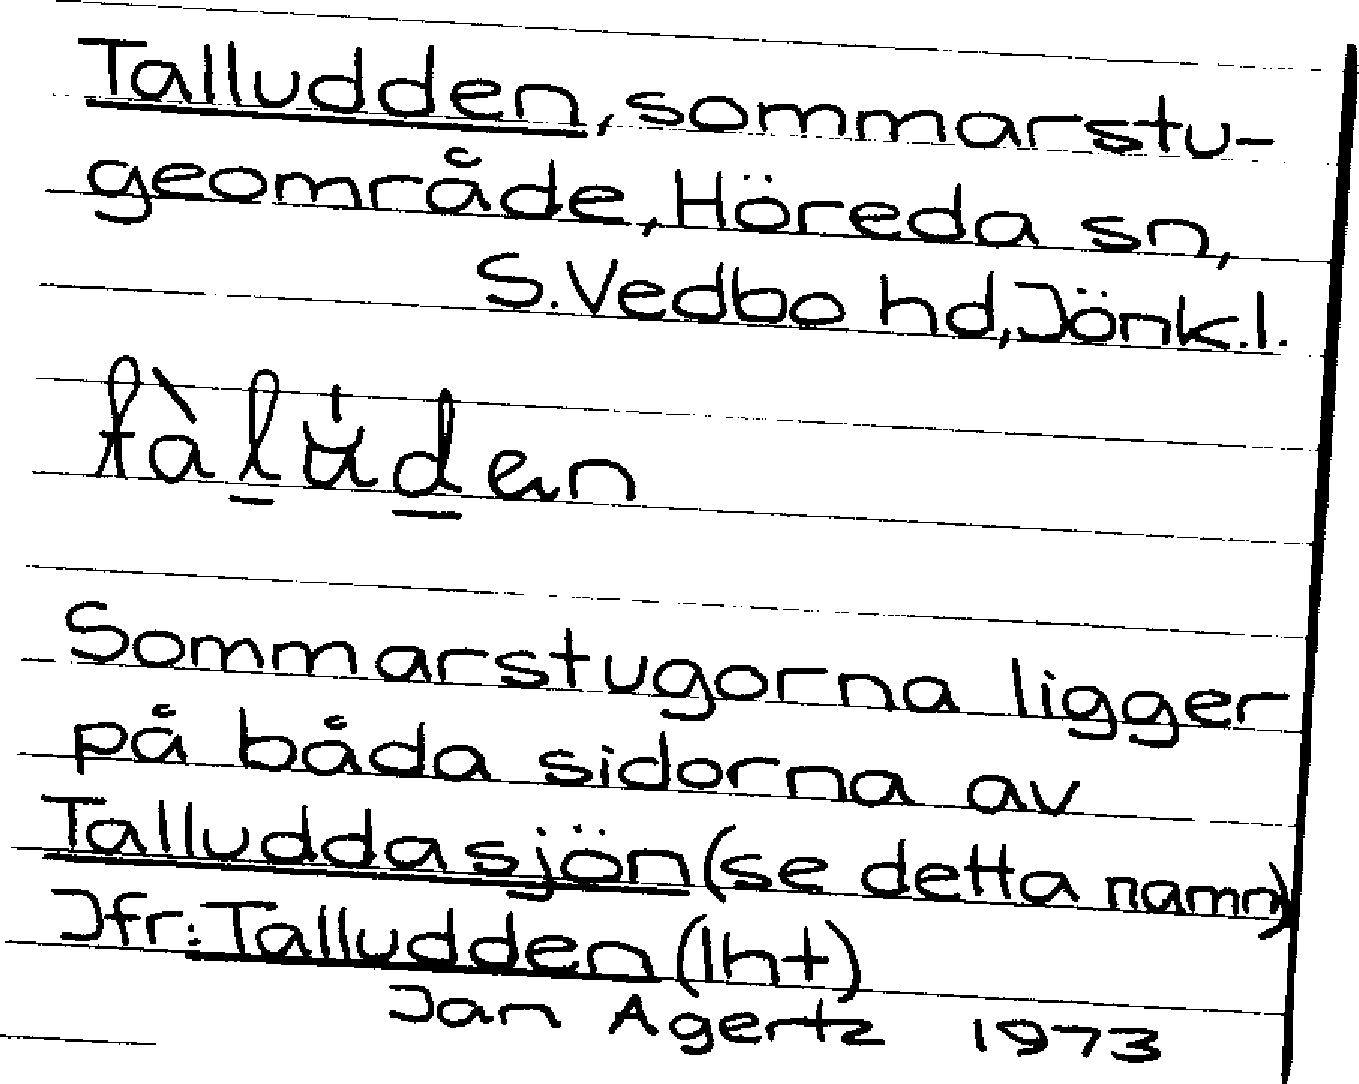 Talludden, sommarstu-
geområde, Höreda sn,
S. Vedbo hd, Jönk. l.
Sommarstugorna ligger
på båda sidorna av
Talluddasjön (se detta namn)
Jfr: Talludden (lht)
Jan Agertz 1973